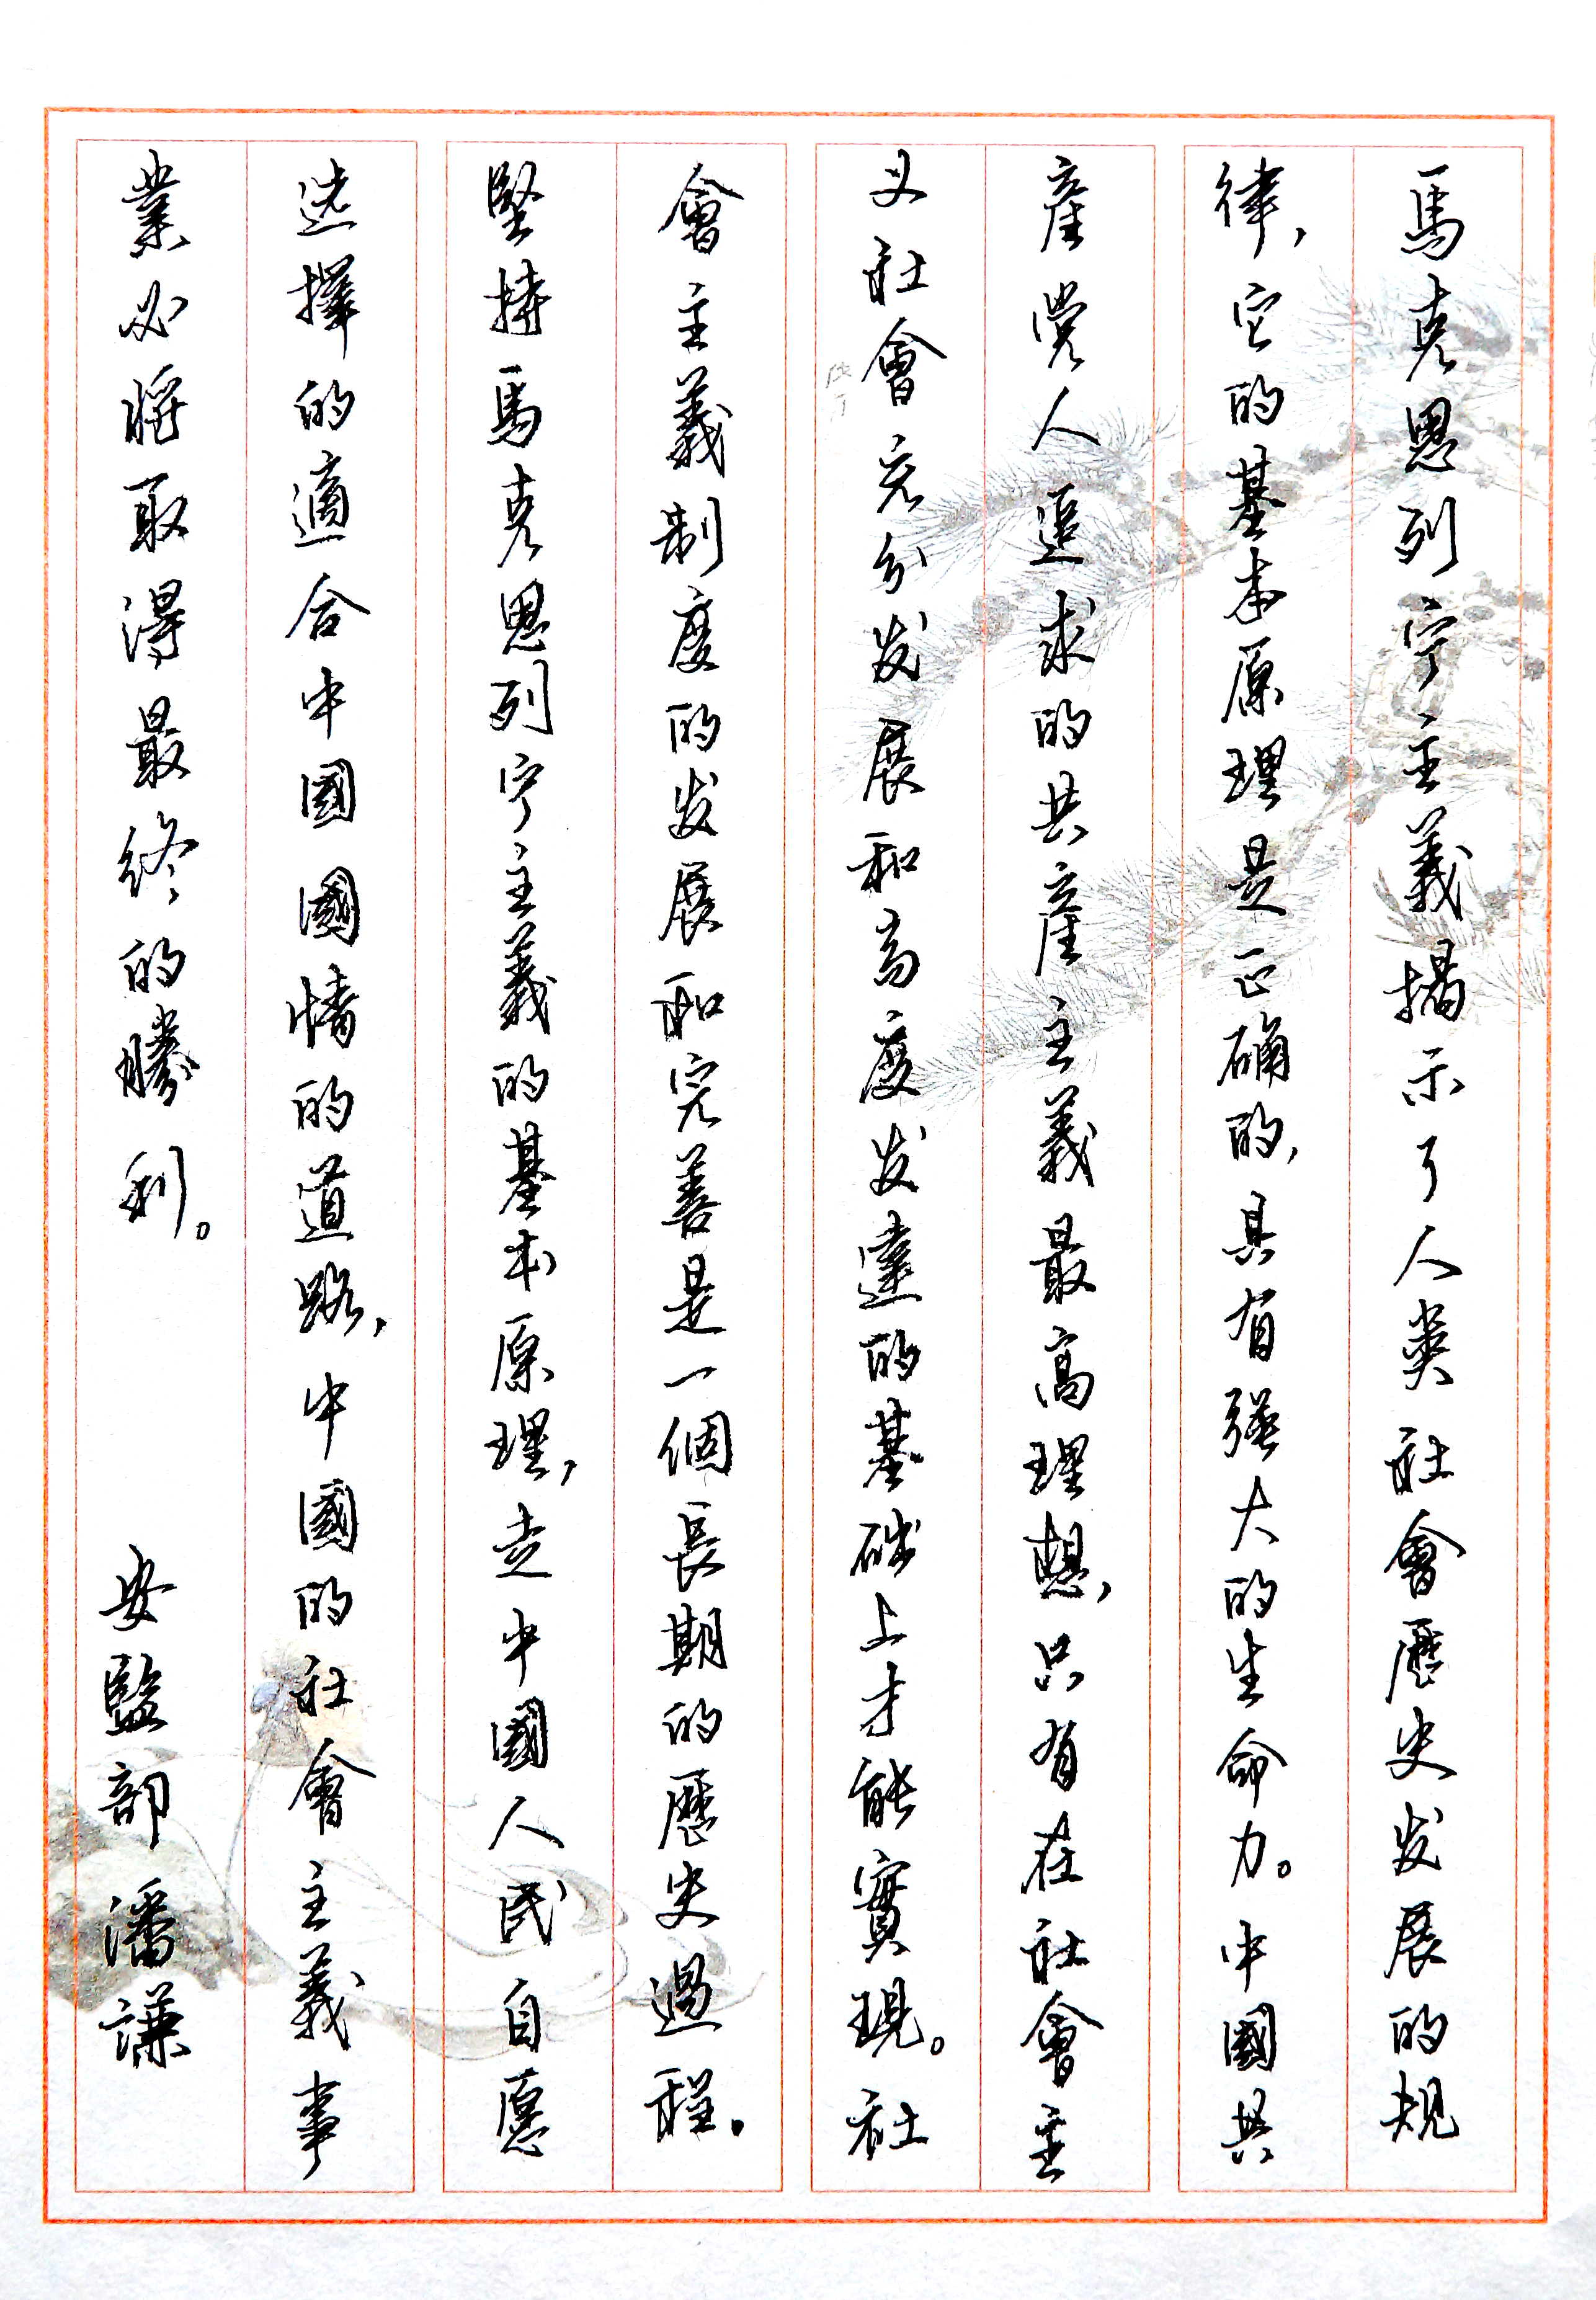 馬克思列宁主義揭示了人类社會歷史发展的規
律，它的基本原理是正确的，具有强大的生命力。中國共
產党人追求的共產主義最高理想，只有在社會主
义社會充分发展和高度发達的基础上才能實現。社
會主義制度的发展和完善是一個長期的歷史過程。
堅持馬克思列宁主義的基本原理，走中國人民自愿
选擇的適合中國國情的道路，中國的社會主義事
業必將取得最終的勝利。
安監部潘謙